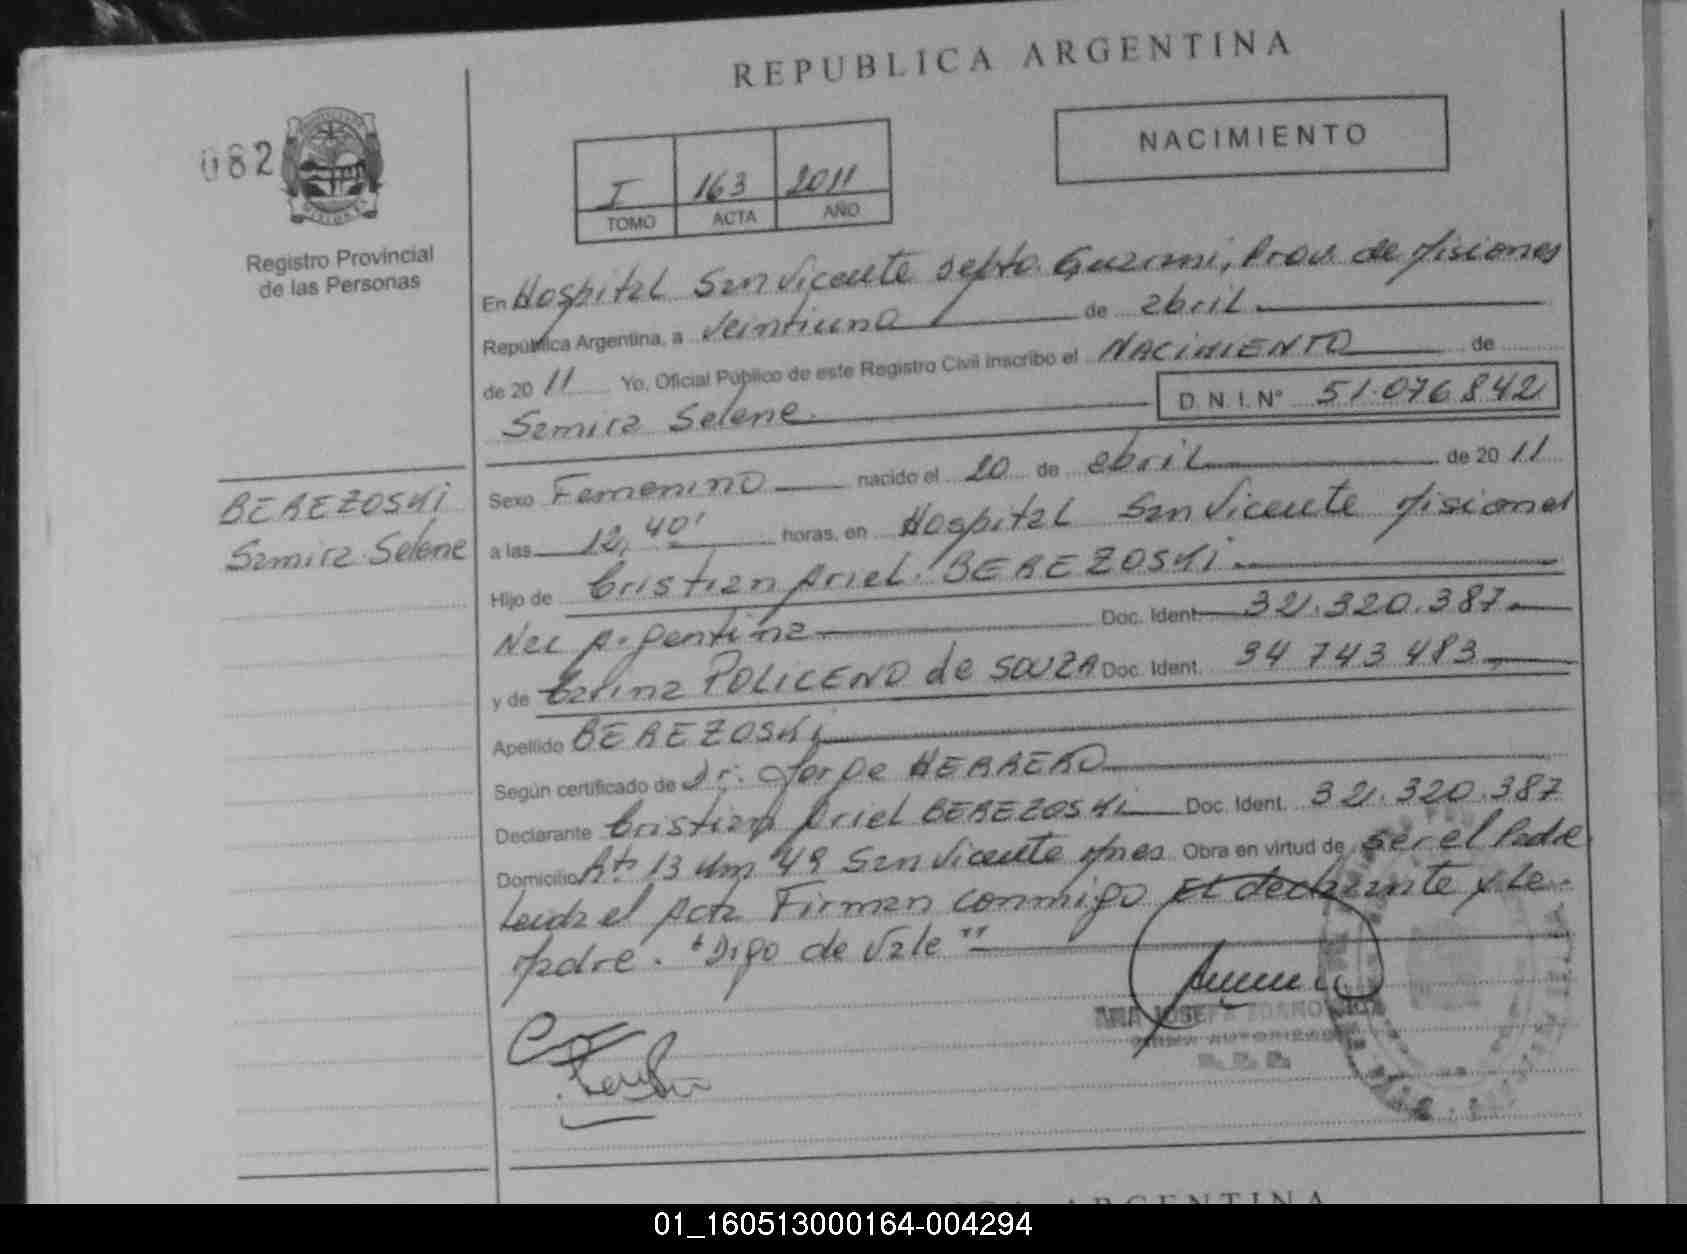 REPUBLICA ARGENTINA
082
NACIMIENTO
I 163 2011
TOMO ACTA AÑO
Registro Provincial
de las Personas
En Hospital San Vicente Depto. Guarani, Prov. de Misiones
República Argentina, a veintiuno de abril
de 2011 Yo, Oficial Público de este Registro Civil inscribo el NACIMIENTO de
Samira Selene. D. N. I. Nº 51.076.842
BEREZOSKI
Samira Selene
Sexo Femenino nacido el 20 de abril de 2011
a las 12,40' horas, en Hospital San Vicente Misiones
Hijo de Cristian Ariel BEREZOSKI
Nac Argentina Doc. Ident. 32.320.387
y de Carina POLICENO de SOUZA Doc. Ident. 34 743 483
Apellido BEREZOSKI
Según certificado de Dr. Jorge HERRERO
Declarante Cristian Ariel BEREZOSKI Doc. Ident. 32.320.387
Domicilio Rta 13 Km 49 San Vicente Mnes Obra en virtud de ser el Padre
Leida el Acta Firman conmigo El declarante y la
Madre. "Digo de Vale"
ANA JOSEFA
FIRMA AUTORIZADA
ARGENTINA
01_160513000164-004294